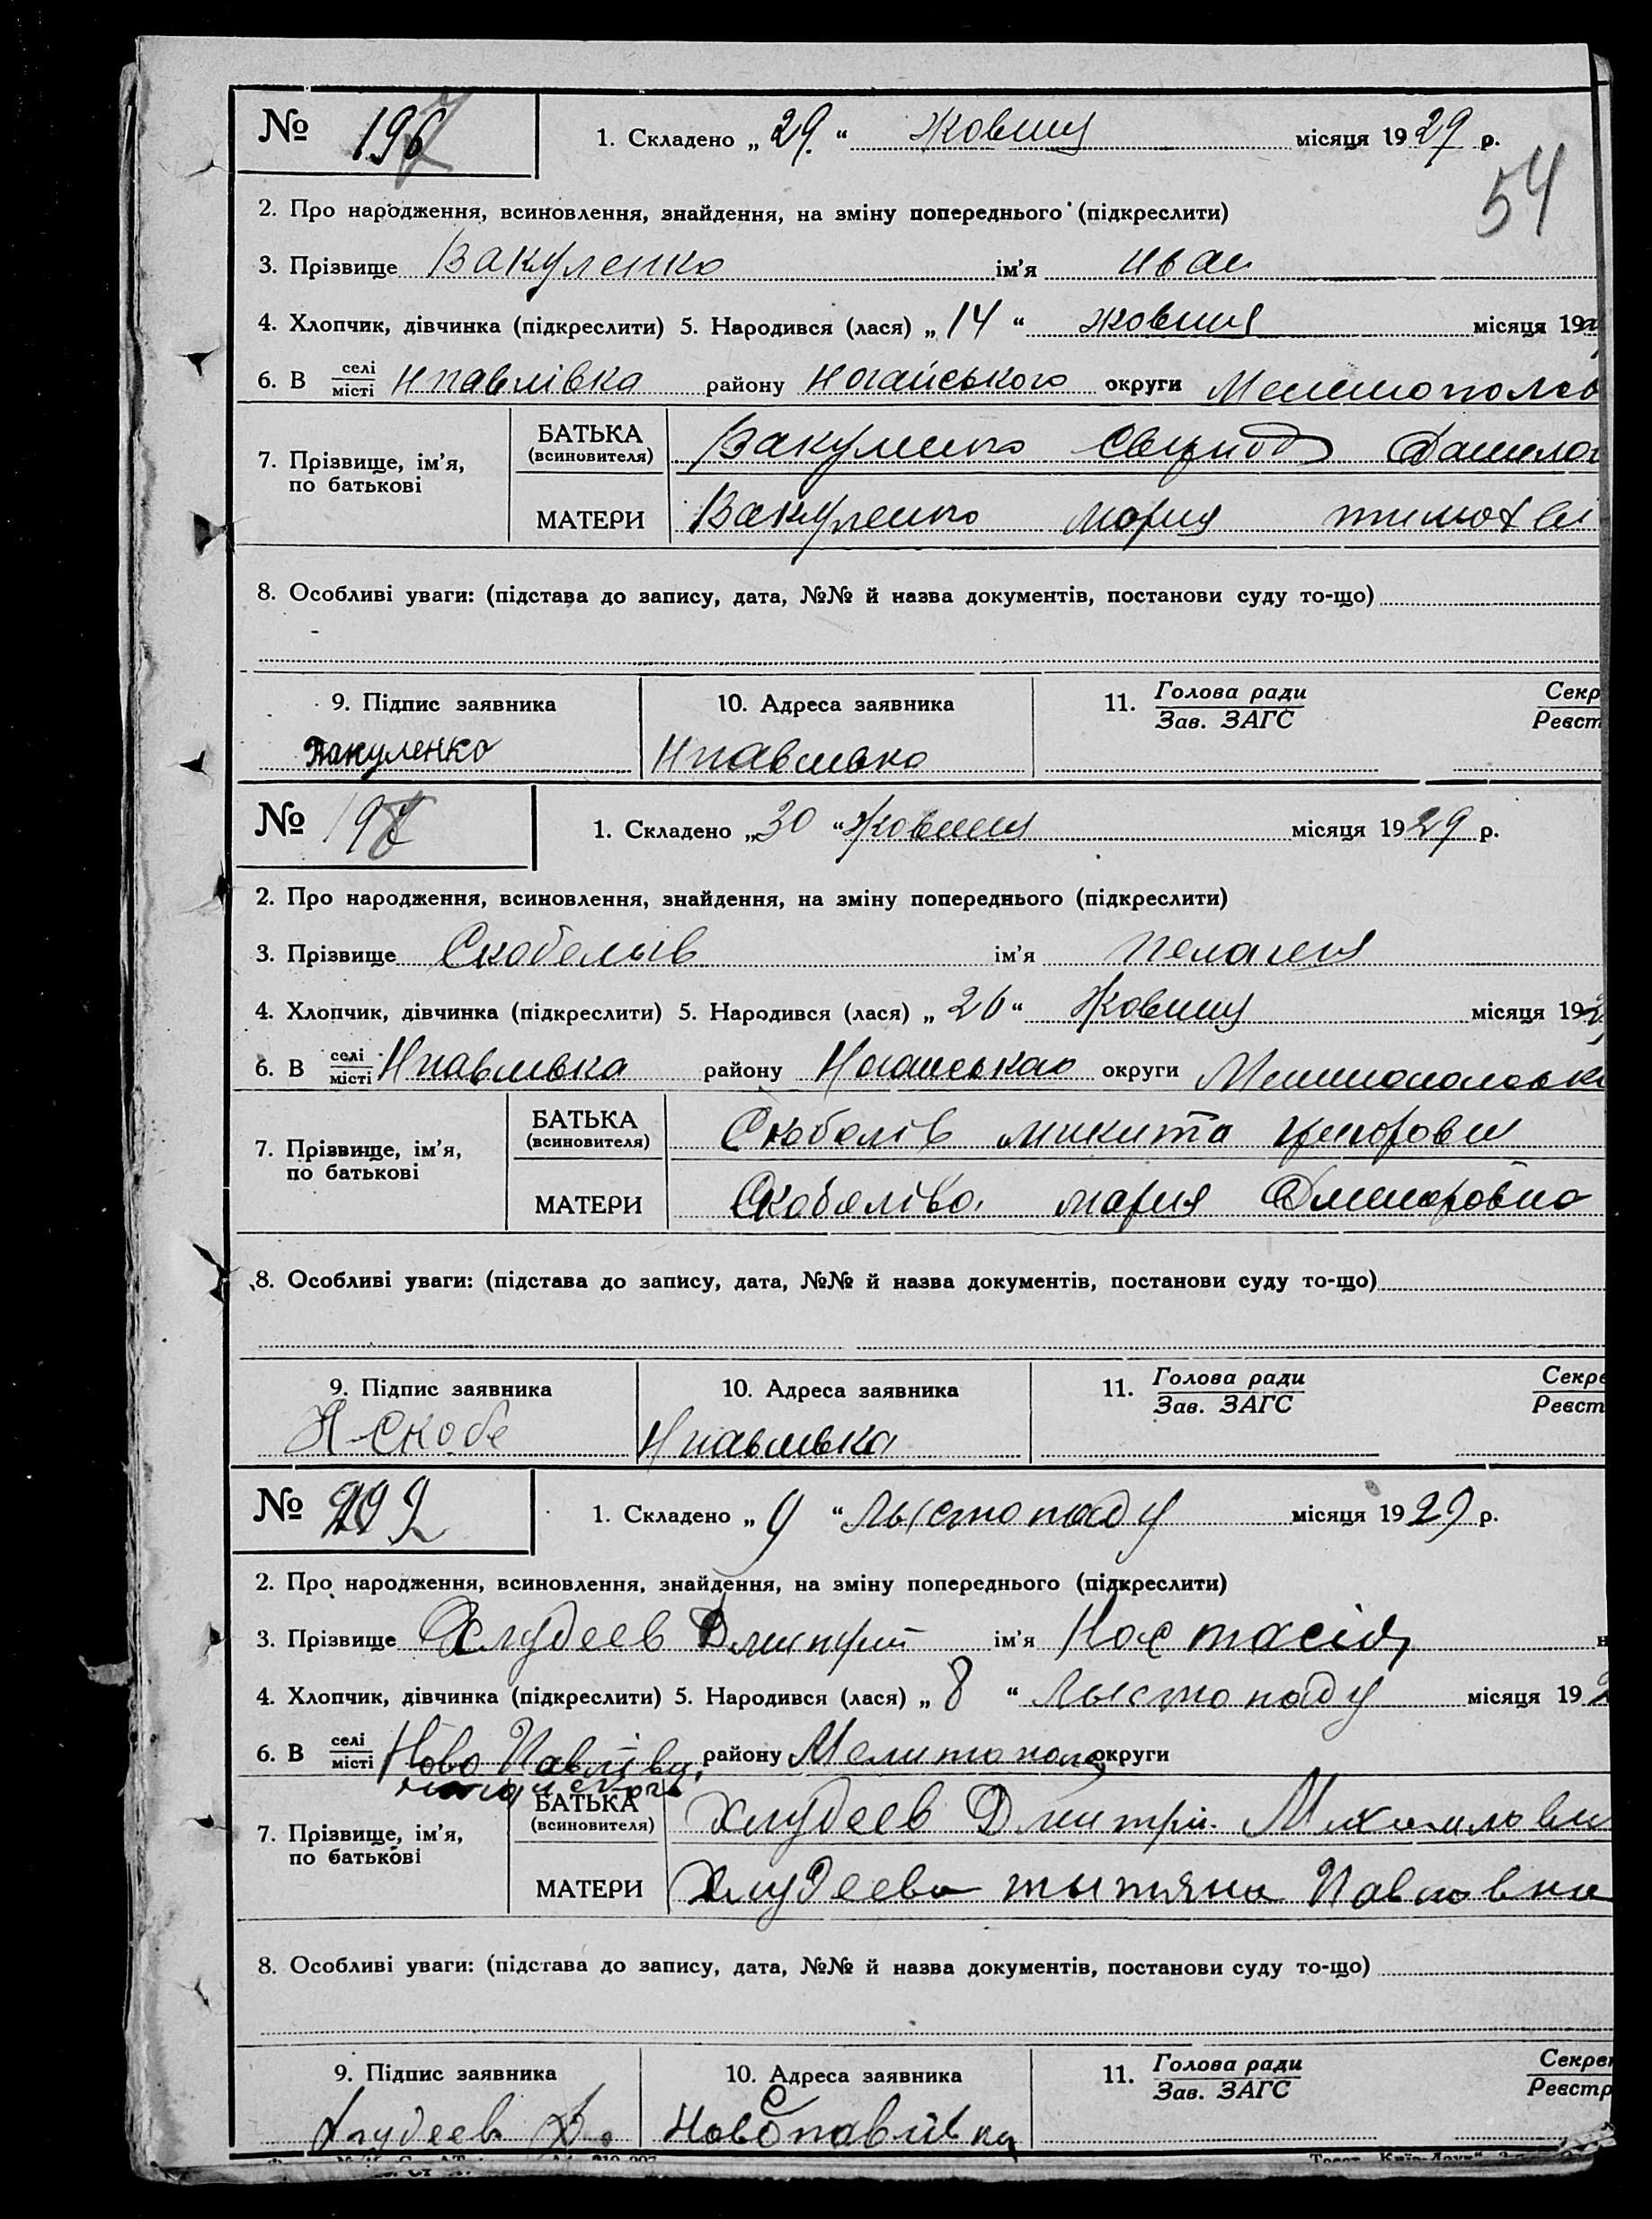 № 196
1. Складено „ 29. “ Жовтня місяця 1929 р.
54
2. Про народження, всиновлення, знайдення, на зміну попереднього (підкреслити)
3. Прізвище Вакуленко ім'я иван
4. Хлопчик, дівчинка (підкреслити) 5. Народився (лася) „ 14 “ жовтня місяця 192
6. В селі / місті Нпавлівка району Ногайського округи Мелитополсь
7. Прізвище, ім'я, по батькові
БАТЬКА (всиновителя) Вакуленко Данило
МАТЕРИ Вакуленко Мария тимоф
8. Особливі уваги: (підстава до запису, дата, №№ й назва документів, постанови суду то-що)
9. Підпис заявника 10. Адреса заявника 11. Голова ради / Зав. ЗАГС Секр / Реєст
Вакуленко Нпавлівка
№ 197
1. Складено „ 30 “ Жовтня місяця 1929 р.
2. Про народження, всиновлення, знайдення, на зміну попереднього (підкреслити)
3. Прізвище Скобелів ім'я Пелагея
4. Хлопчик, дівчинка (підкреслити) 5. Народився (лася) „ 26 “ Жовтня місяця 192
6. В селі / місті Нпавлівка району Ногайського округи Мелитопольськ
7. Прізвище, ім'я, по батькові
БАТЬКА (всиновителя) Скобелів микита
МАТЕРИ Скобеліва мария Дмитровна
8. Особливі уваги: (підстава до запису, дата, №№ й назва документів, постанови суду то-що)
9. Підпис заявника 10. Адреса заявника 11. Голова ради / Зав. ЗАГС Секре / Реєст
Н Скобе Нпавлівка
№
1. Складено „ 9 “ Лыстопаду місяця 1929 р.
2. Про народження, всиновлення, знайдення, на зміну попереднього (підкреслити)
3. Прізвище Хлудеев Дмитрий ім'я Настасія н
4. Хлопчик, дівчинка (підкреслити) 5. Народився (лася) „ 8 “ Лыстопаду місяця 192
6. В селі / місті Ново Павлівци району Мелитополь округи
7. Прізвище, ім'я, по батькові
БАТЬКА (всиновителя) Хлудеев Дмитрий Михаилови
МАТЕРИ Хлудеева тытяна Павловна
8. Особливі уваги: (підстава до запису, дата, №№ й назва документів, постанови суду то-що)
9. Підпис заявника 10. Адреса заявника 11. Голова ради / Зав. ЗАГС Секрет / Реєстр
Хлудеев Д С Новопавлівка